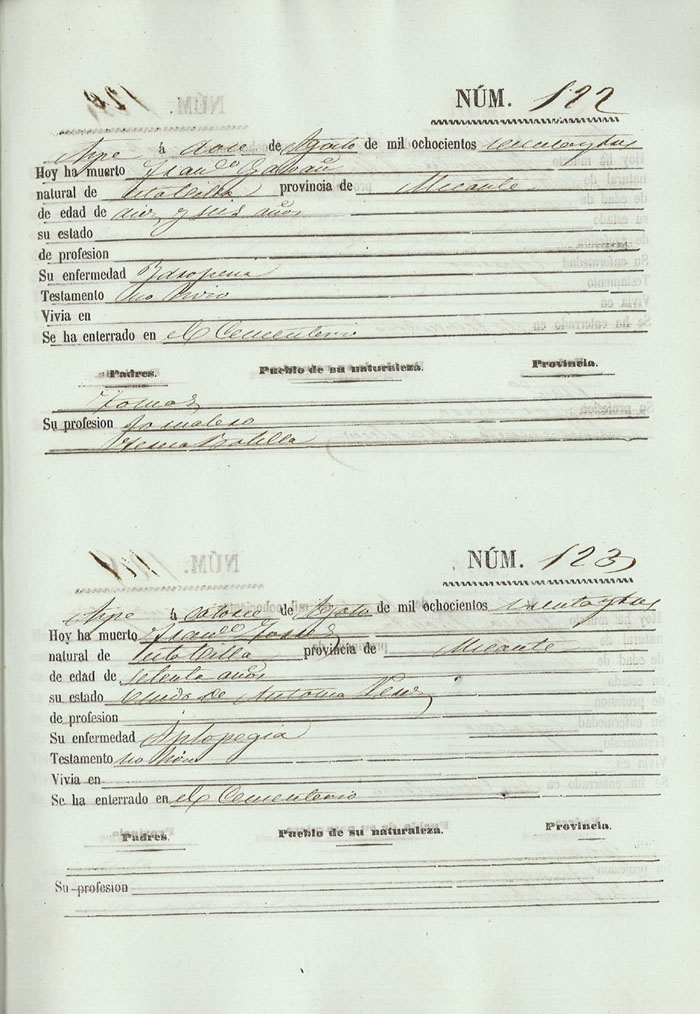 NÚM. 122
Aspe á doce de Agosto de mil ochocientos
Hoy ha muerto Fran.co Galvañ
natural de esta Villa provincia de Alicante
de edad de diez y seis años
su estado
de profesion
Su enfermedad
Testamento no hizo
Vivia en
Se ha enterrado en el Cementerio
Padres. Pueblo de su naturaleza. Provincia.
Tomas
Su profesion Jornalero
Teresa Botella
NÚM. 123
Aspe á catorce de Agosto de mil ochocientos
Hoy ha muerto Fran.co
natural de esta Villa provincia de Alicante
de edad de setenta años
su estado Viudo de Antonia Perez
de profesion
Su enfermedad Aplopegia
Testamento no hizo
Vivia en
Se ha enterrado en el Cementerio
Padres. Pueblo de su naturaleza. Provincia.
Su profesion